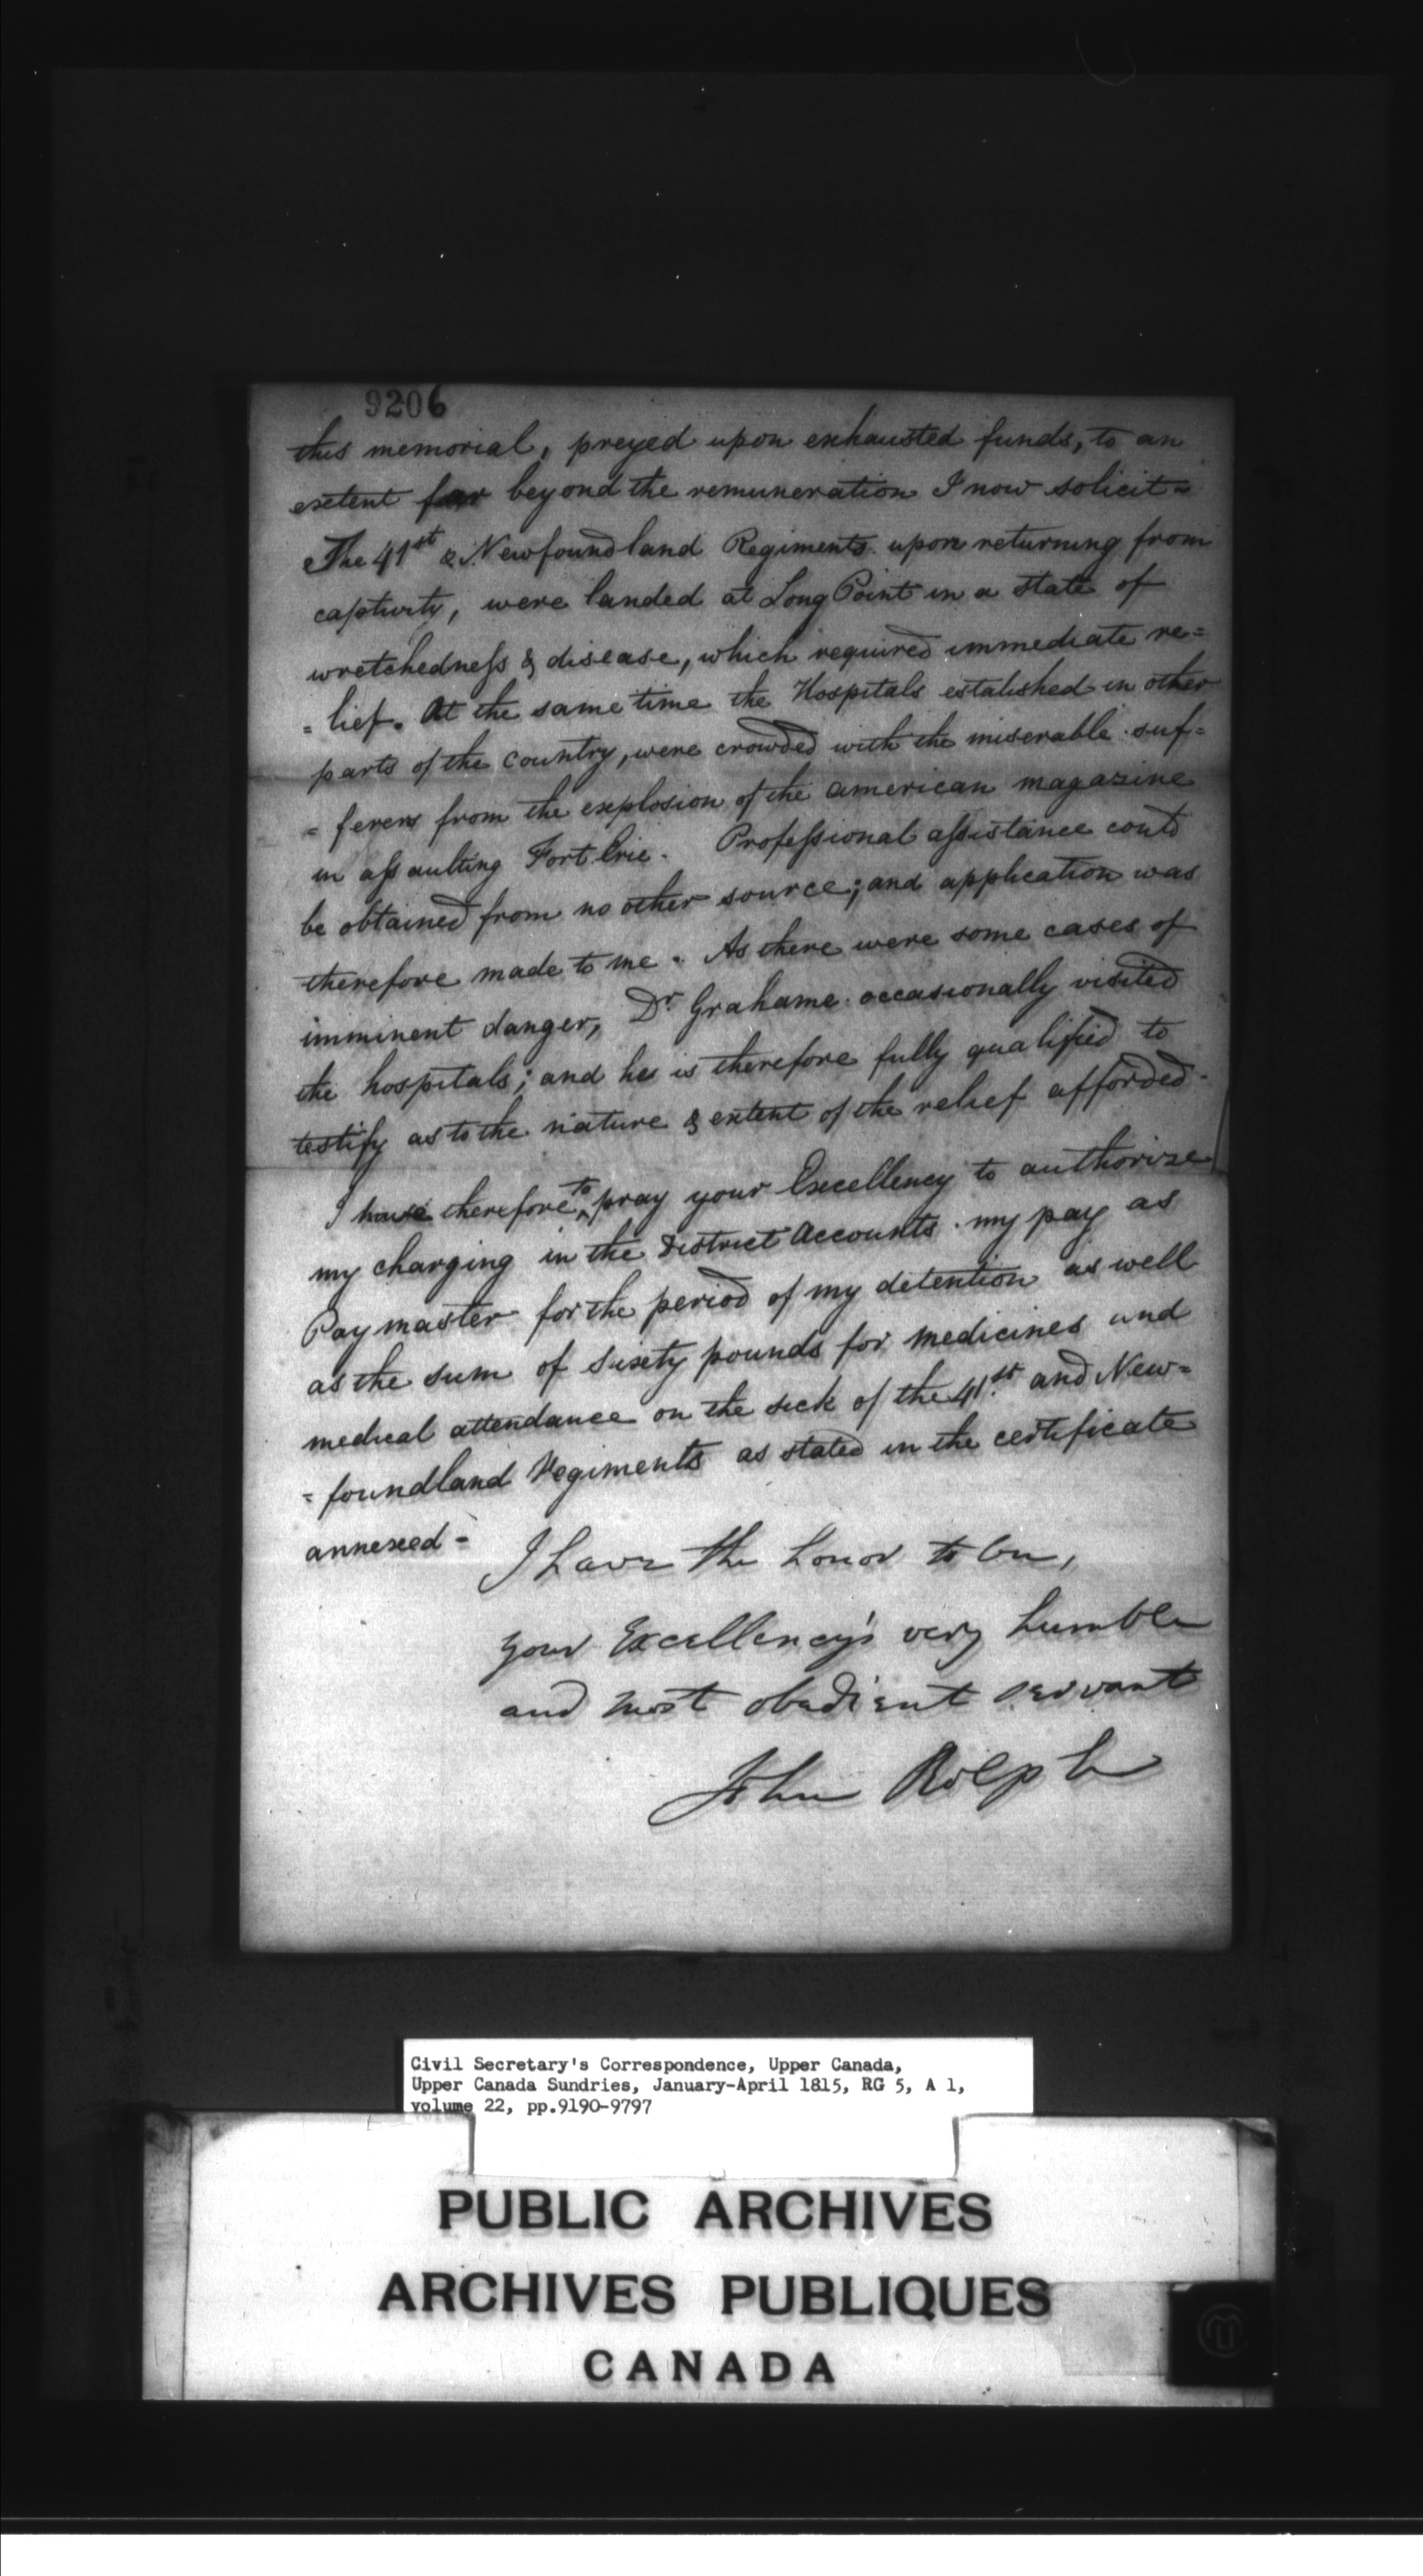 9206
this memorial, preyed upon exhausted funds, to an
extent far beyond the remuneration I now solicit -
The 41st & Newfoundland Regiments upon returning from
captivity, were landed at Long Point in a state of
wretchedness & disease, which required immediate re=
= lief. At the same time the Hospitals estalished in other
parts of the country, were crowded with the miserable suf=
= ferers from the explosion of the american magazine
in assaulting Fort Erie. Professional assistance could
be obtained from no other source; and application was
therefore made to me. As there were some cases of
imminent danger, Dr Grahame occasionally visited
the hospitals; and he is therefore fully qualified to
testify as to the nature & extent of the relief afforded.
I have therefore to pray your Excellency to authorize
my charging in the District Accounts my pay as
Paymaster for the period of my detention as well
as the sum of sixty pounds for medicines and
medical attendance on the sick of the 41st and New=
= foundland Regiments as stated in the certificate
annexed -
I have the honor to be,
your Excellency's very humble
and most obedient servant
John Rolph
Civil Secretary's Correspondence, Upper Canada,
Upper Canada Sundries, January-April 1815, RG 5, A 1,
volume 22, pp.9190-9797
PUBLIC ARCHIVES
ARCHIVES PUBLIQUES
CANADA